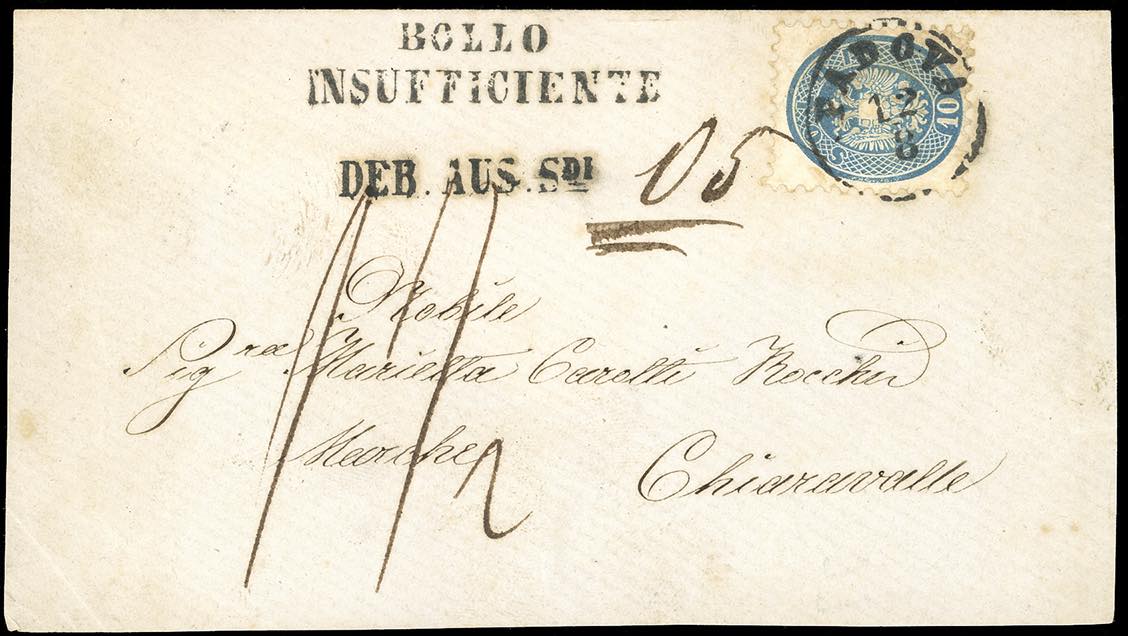 BOLLO
INSUFFICIENTE
DEB. AUS. SDI 05
PADOVA
12
8
10
Nobile
Sigra Marietta Carotti
Marche
Chiaravalle